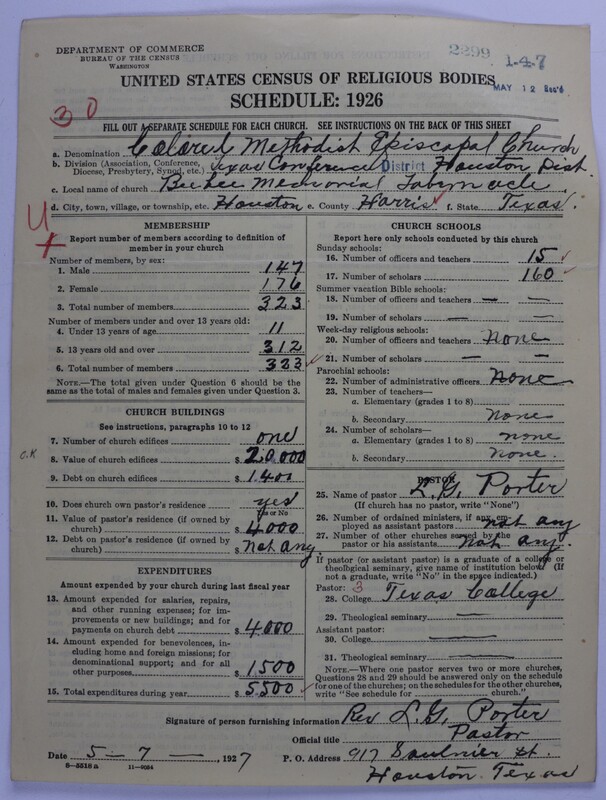 DEPARTMENT OF COMMERCE
BUREAU OF THE CENSUS
WASHINGTON
2299
1-4-7
UNITED STATES CENSUS OF RELIGIOUS BODIES
MAY 12 Rec'd
SCHEDULE: 1926
30
FILL OUT A SEPARATE SCHEDULE FOR EACH CHURCH. SEE INSTRUCTIONS ON THE BACK OF THIS SHEET
a. Denomination Colored Methodist Episcopal Church
b. Division (Association, Conference, Diocese, Presbytery, Synod, etc.) Texas Conference District Houston Dist.
c. Local name of church Beebee Memorial Tabynacle
d. City, town, village, or township, etc. Houston e. County Harris f. State Texas.
MEMBERSHIP
Report number of members according to definition of
member in your church
Number of members, by sex:
1. Male 147
2. Female 176
3. Total number of members 323
Number of members under and over 13 years old:
4. Under 13 years of age 11
5. 13 years old and over 312
6. Total number of members 323
NOTE.—The total given under Question 6 should be
the same as the total of males and females given under Question 3.
CHURCH BUILDINGS
See instructions, paragraphs 10 to 12
7. Number of church edifices one
O.K.
8. Value of church edifices $ 20,000
9. Debt on church edifices $ 1400
10. Does church own pastor's residence yes
Yes or No
11. Value of pastor's residence (if owned by
church) $ 4000
12. Debt on pastor's residence (if owned by
church) $ not any
EXPENDITURES
Amount expended by your church during last fiscal year
13. Amount expended for salaries, repairs,
and other running expenses; for im-
provements or new buildings; and for
payments on church debt $ 4000
14. Amount expended for benevolences, in-
cluding home and foreign missions; for
denominational support; and for all
other purposes $ 1500
15. Total expenditures during year $ 5,500
CHURCH SCHOOLS
Report here only schools conducted by this church
Sunday schools:
16. Number of officers and teachers 15
17. Number of scholars 160
Summer vacation Bible schools:
18. Number of officers and teachers — —
19. Number of scholars — —
Week-day religious schools:
20. Number of officers and teachers none
21. Number of scholars — —
Parochial schools:
22. Number of administrative officers none
23. Number of teachers—
a. Elementary (grades 1 to 8)
b. Secondary none
24. Number of scholars—
a. Elementary (grades 1 to 8) none
b. Secondary none.
PASTOR
25. Name of pastor L. G. Porter
(If church has no pastor, write "None")
26. Number of ordained ministers, if any, em-
ployed as assistant pastors not any
27. Number of other churches served by the
pastor or his assistants not any.
If pastor (or assistant pastor) is a graduate of a college or
theological seminary, give name of institution below. (If
not a graduate, write "No" in the space indicated.)
Pastor: 3
28. College Texas College
29. Theological seminary
Assistant pastor:
30. College
31. Theological seminary
NOTE.—Where one pastor serves two or more churches,
Questions 28 and 29 should be answered only on the schedule
for one of the churches; on the schedules for the other churches,
write "See schedule for church."
Signature of person furnishing information Rev L. G. Porter
Official title Pastor
Date 5 — 7 —, 1927 P. O. Address 917 Saulnier St.
8-5518 a 11-9034 Houston Texas